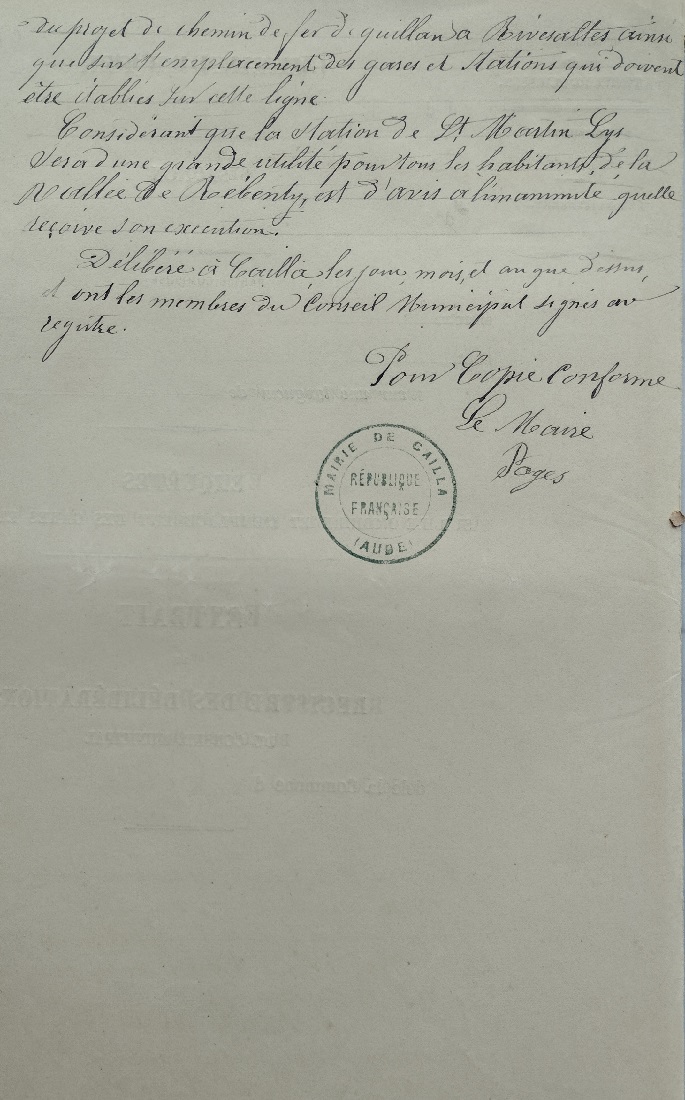 du projet de chemin de fer de quillan a Rivesaltes ainsi
que sur l'emplacement des gares et stations qui doivent
être établies sur cette ligne.
Considérant que la station de St Martin Lys
sera d'une grande utilité pour tous les habitants de la
Vallée de Rébenty, est d'avis a l'unanimité quelle
reçoive son execution.
Délibéré à Cailla les jour mois, et an que dessus,
et ont les membres du Conseil Municipal signés au
registre.
Pour Copie Conforme
Le Maire
Pages
MAIRIE DE CAILLA
RÉPUBLIQUE
FRANÇAISE
(AUDE)